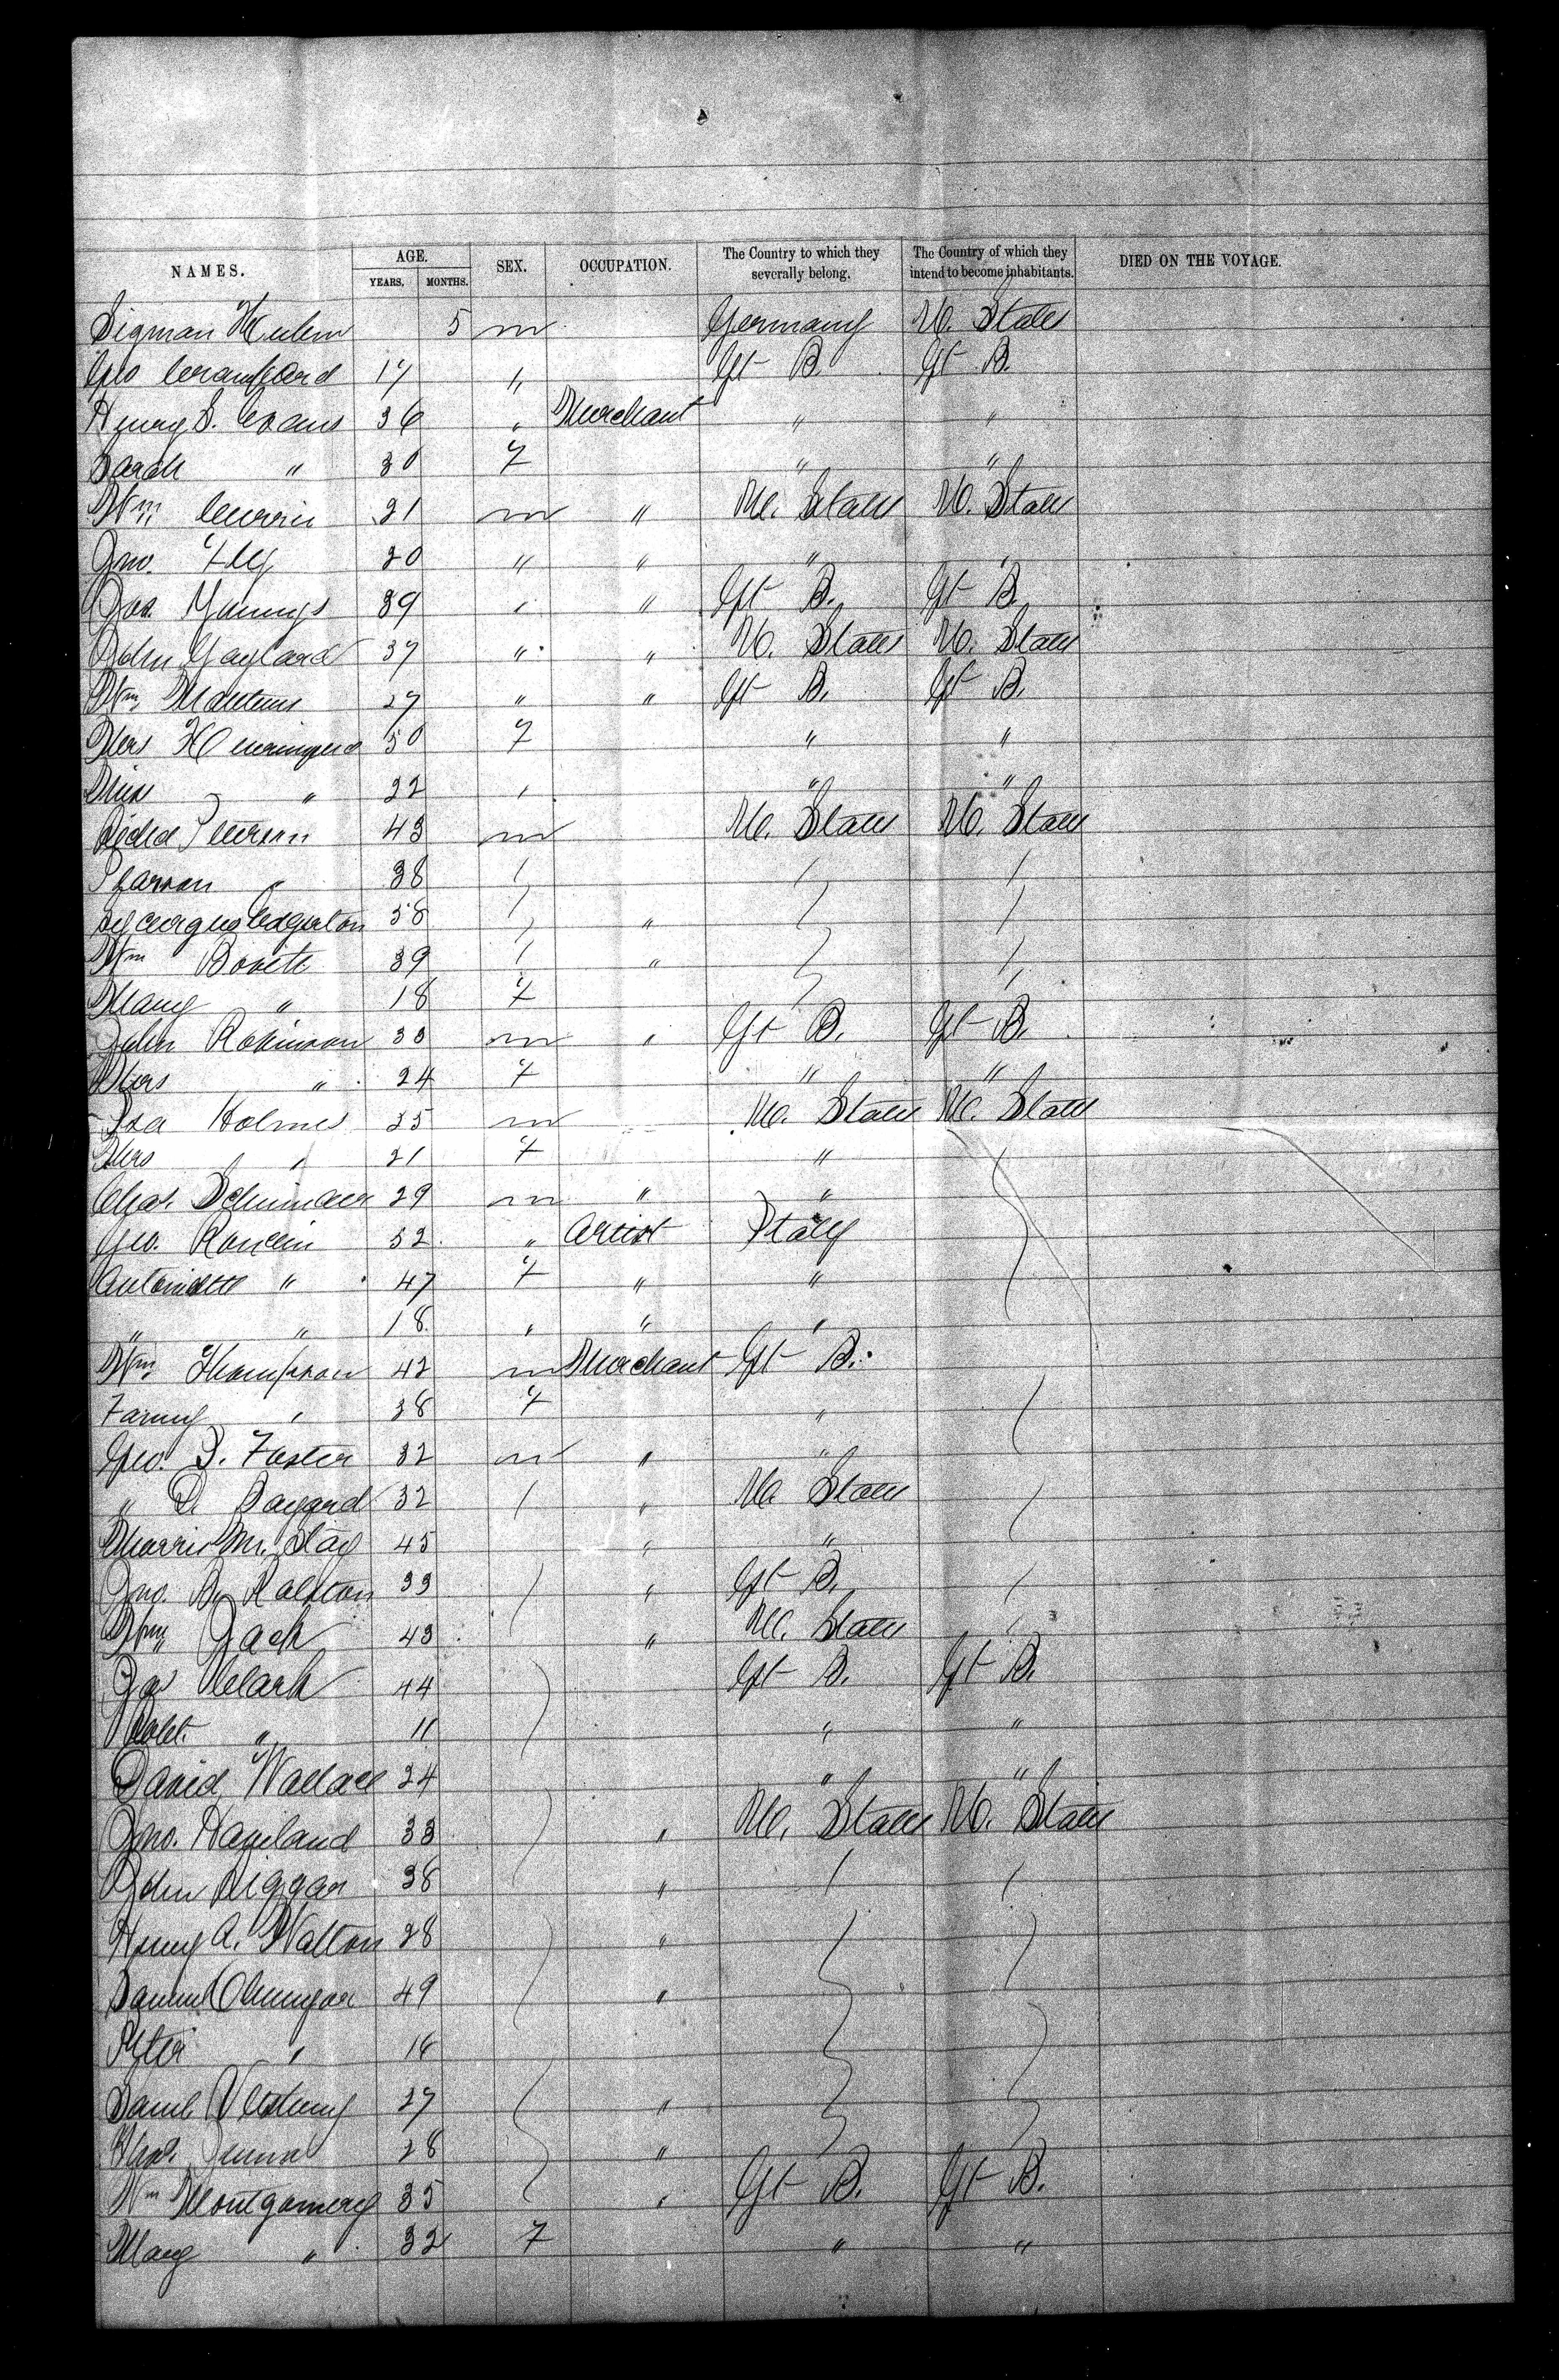 NAMES. AGE. YEARS. MONTHS. SEX. OCCUPATION. The Country to which they severally belong. The Country of which they intend to become inhabitants. DIED ON THE VOYAGE.
Sigman 5 m Germany U. States
Geo Crawford 17 " Gt B. Gt B.
Henry S. Evans 36 " Merchant " "
Sarah " 30 F " "
Wm Currie 21 m " U. States U. States
Jno. Fly 20 " " " "
Jas. Youngs 39 " " Gt B. Gt B.
John Gaylard 37 " " U. States U. States
Wm Matthews 27 " " Gt B. Gt B.
Mrs 50 F " "
Miss " 22 " " "
Richd 43 m U. States U. States
" 38
Lycurgus Edgerton 58 "
Wm 39 "
Mary " 18 F
John Robinson 33 m " Gt B. Gt B.
Mrs " 24 F " "
Isa Holmes 35 m U. States U. States
Mrs " 21 F "
Chas. 29 m " "
Geo. 52 " Artist Italy
Antoinette " 47 F " "
" " 18 " " "
Wm Thompson 42 m Merchant Gt B.
Fanny " 38 F "
Geo. S. Foster 32 m " "
" D. Bayard 32 " U. States
Morris M. 45 " "
Jno. B. Ralston 33 " Gt B.
Wm Jack 43 " U. States
Jas Clark 44 Gt B. Gt B.
Robt. " 11 " "
David Wallace 24 " "
Jno. Haviland 33 " U. States U. States
John 38 "
Henry A. Walton 28 "
Samuel 49 "
Peter " 16
Saml 27 "
28 "
Wm Montgomery 35 " Gt B. Gt B.
Mary " 32 F " "